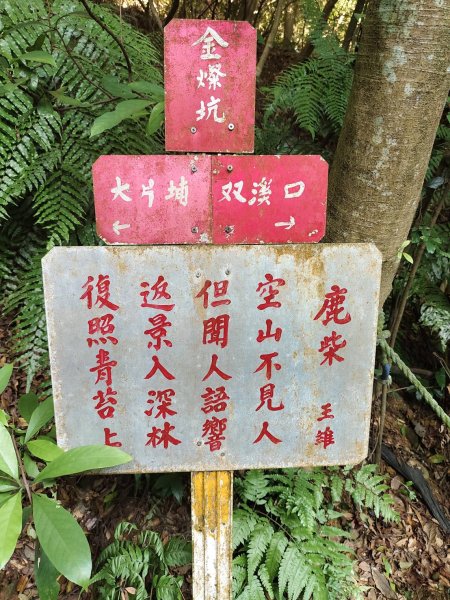 金燦坑
大片埔
←
双溪口
→
鹿柴 王維
空山不見人
但聞人語響
返景入深林
復照青苔上